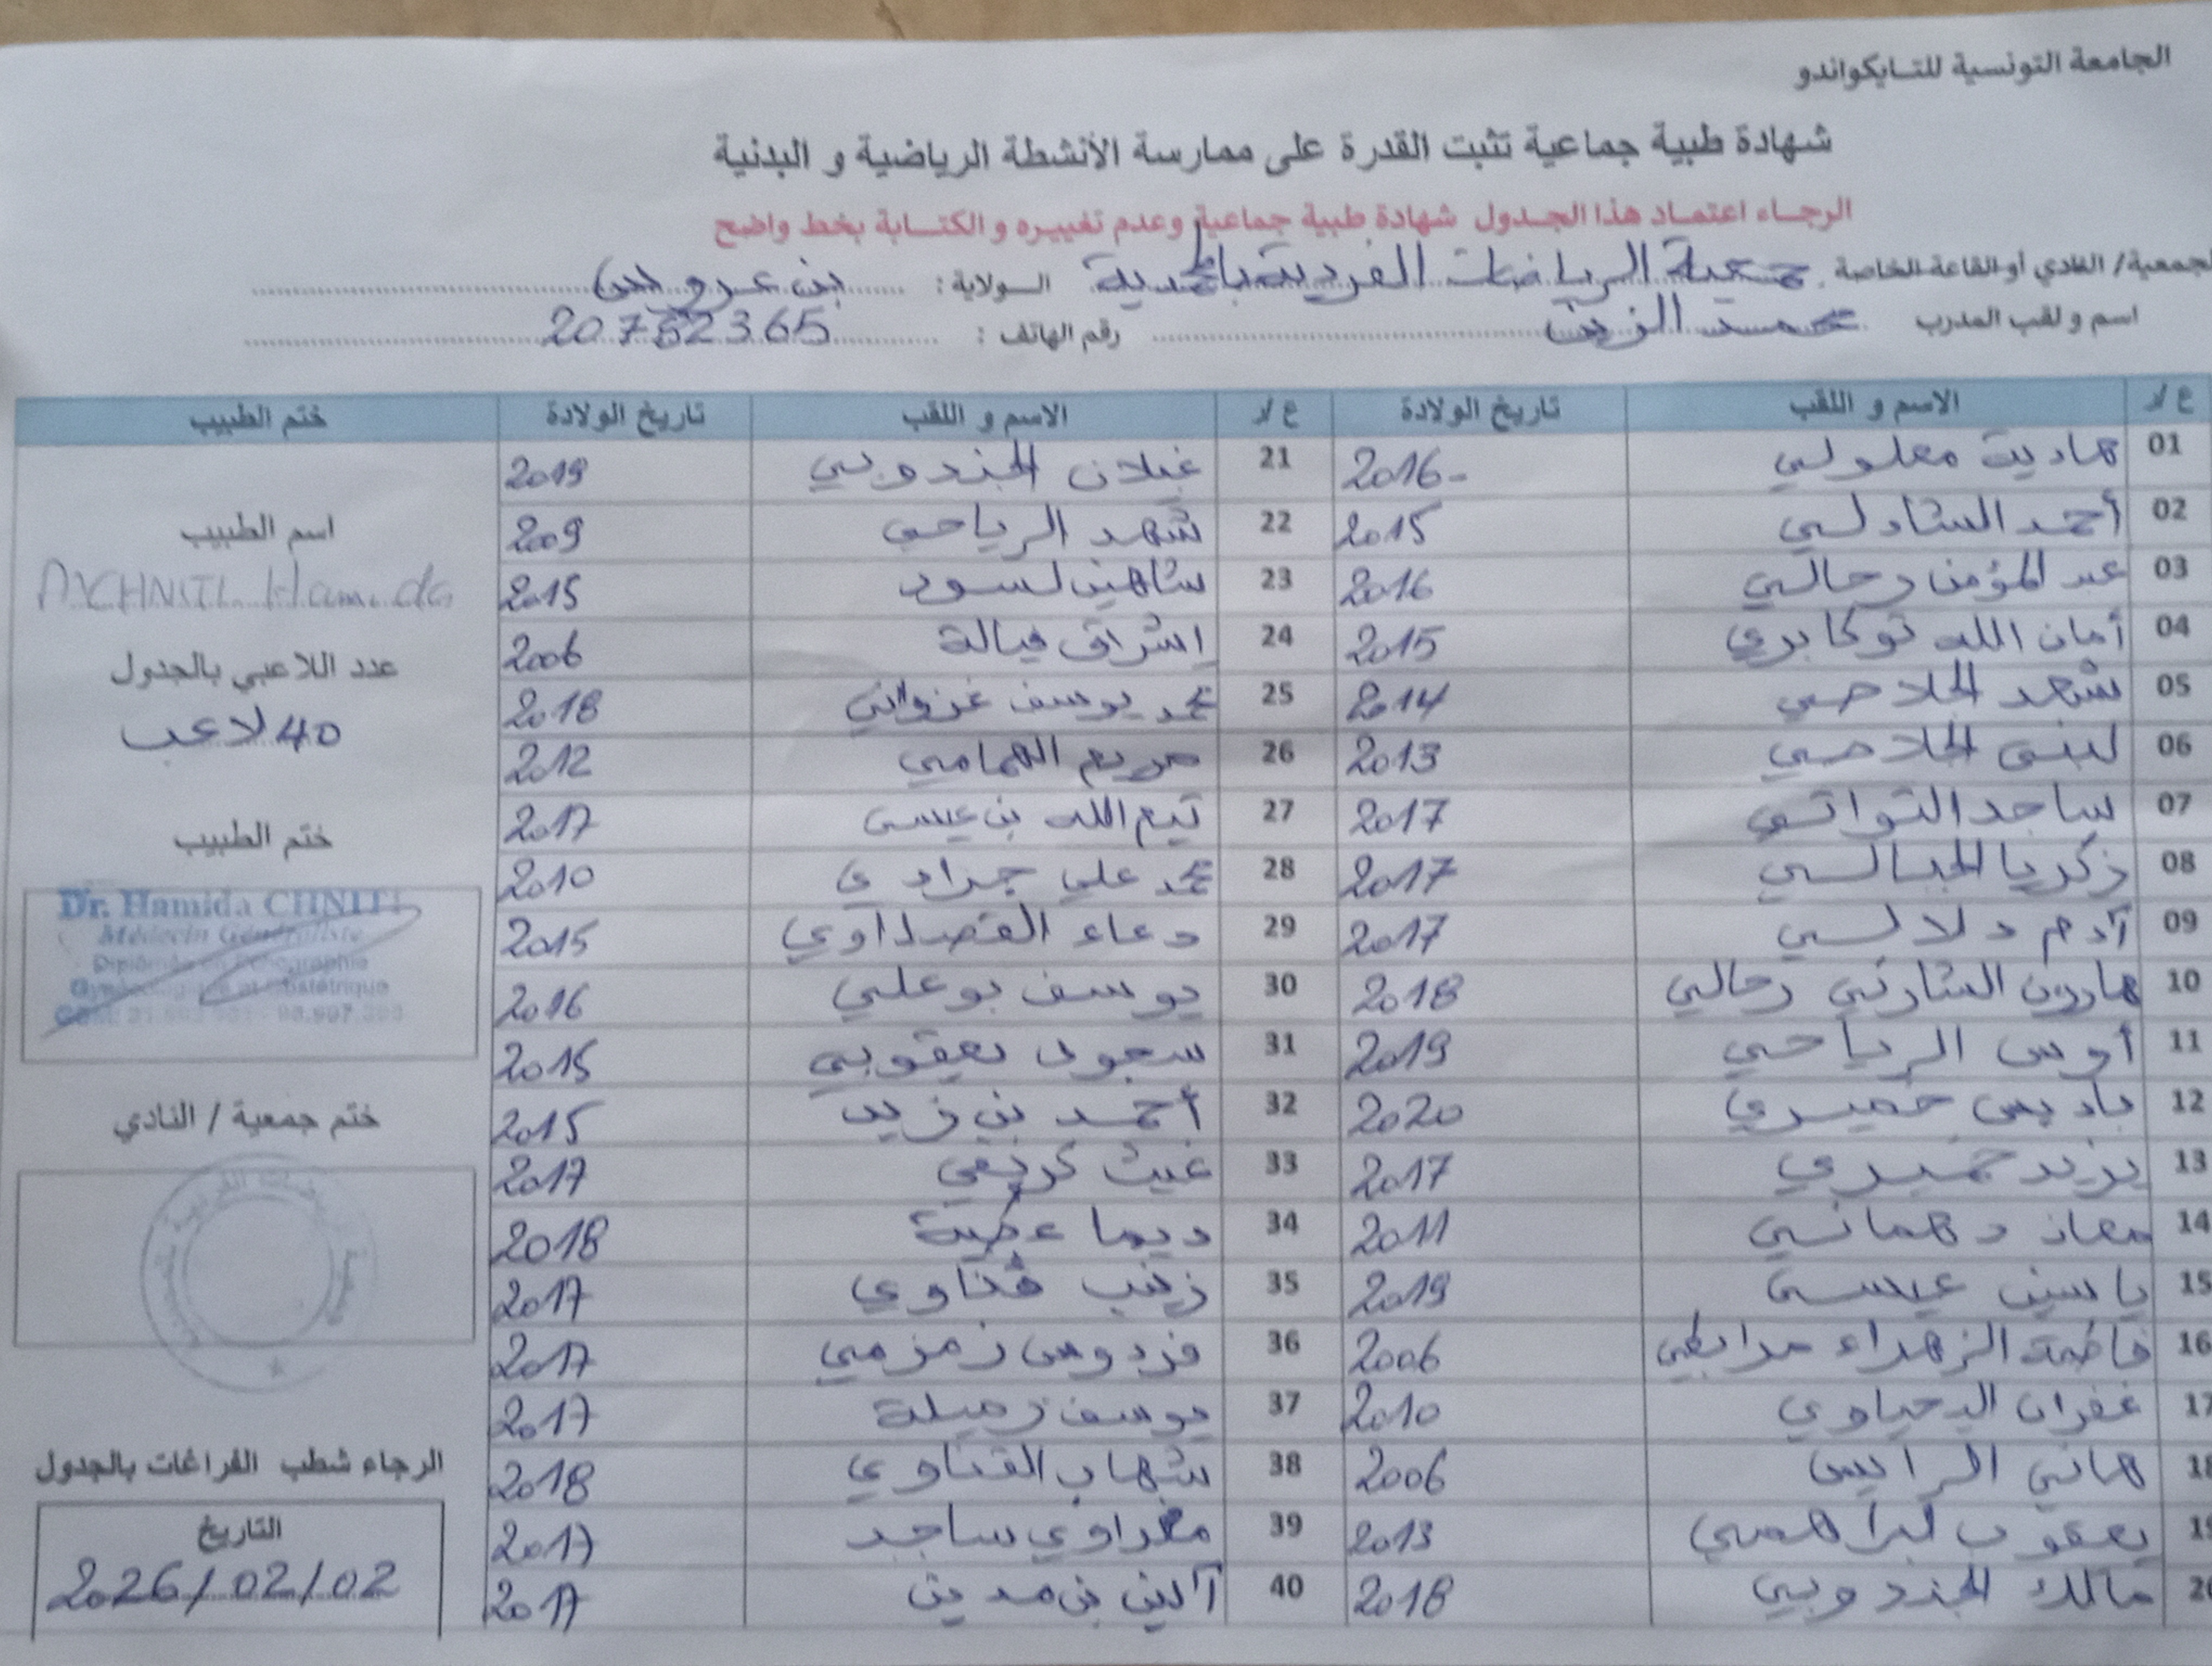 الجامعة التونسية للتايكواندو
شهادة طبية جماعية تثبت القدرة على ممارسة الأنشطة الرياضية و البدنية
الرجاء اعتماد هذا الجدول شهادة طبية جماعية وعدم تغييره و الكتابة بخط واضح
لجمعية/ النادي أو القاعة الخاصة جمعية الرياضات الفردية بالمحمدية السولاية: بن عروس
اسم و لقب المدرب محمد الزين رقم الهاتف : 20752365
ع/د الاسم و اللقب تاريخ الولادة ع/د الاسم و اللقب تاريخ الولادة ختم الطبيب
01 هادية معلولي 2016- 21 غيلان الجندوبي 2019
02 أحمد الشادلي 2015 22 شهد الرياحي 2009
اسم الطبيب
03 عبد المؤمن رحالي 2016 23 شاهين لسود 2015
Hamida
04 أمان الله توكابري 2015 24 إشراق 2006
عدد اللاعبي بالجدول
05 شهد الجلاصي 2014 25 محمد يوسف غزواني 2018
40 لاعب
06 لبنى الجلاصي 2013 26 مريم الهمامي 2012
07 ساجد التواتي 2017 27 تيم الله بن عيسى 2017
ختم الطبيب
08 زكريا الجبالي 2017 28 محمد علي جرادي 2010
Dr. Hamida CHNITI
Médecin Généraliste
09 آدم دلالي 2017 29 دعاء 2015
Diplômée en Echographie
Gynécologique et Obstétrique
10 هارون رحالي 2018 30 يوسف بوعلي 2016
11 أوس الرياحي 2019 31 سجود يعقوبي 2015
12 باديس خميري 2020 32 أحمد بن زيد 2015
ختم جمعية / النادي
13 يزيد خميري 2017 33 غيث كريفي 2017
14 معاذ دهماني 2011 34 ديما عطية 2018
15 ياسين عيسى 2019 35 زينب قناوي 2017
16 فاطمة الزهراء مرابطي 2006 36 فردوس زمزمي 2017
17 غفران اليحياوي 2010 37 يوسف زميلة 2017
18 هاني الرايس 2006 38 شهاب القناوي 2018
الرجاء شطب الفراغات بالجدول
19 يعقوب ابراهمي 2013 39 مغراوي ساجد 2017
التاريخ
20 مالك الجندوبي 2018 40 آلين بن مدين 2017
2026/02/02